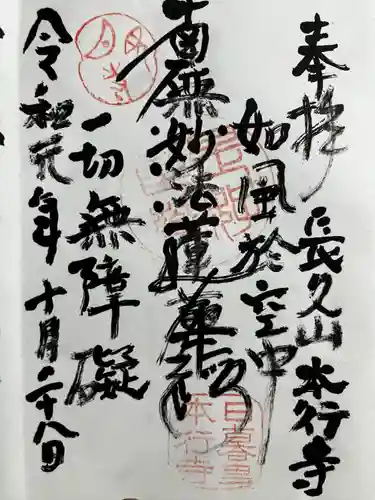 奉拝
長久山本行寺
如風於空中
南無妙法蓮華経
一切無障礙
令和元年十月二十八日
日暮里
本行寺